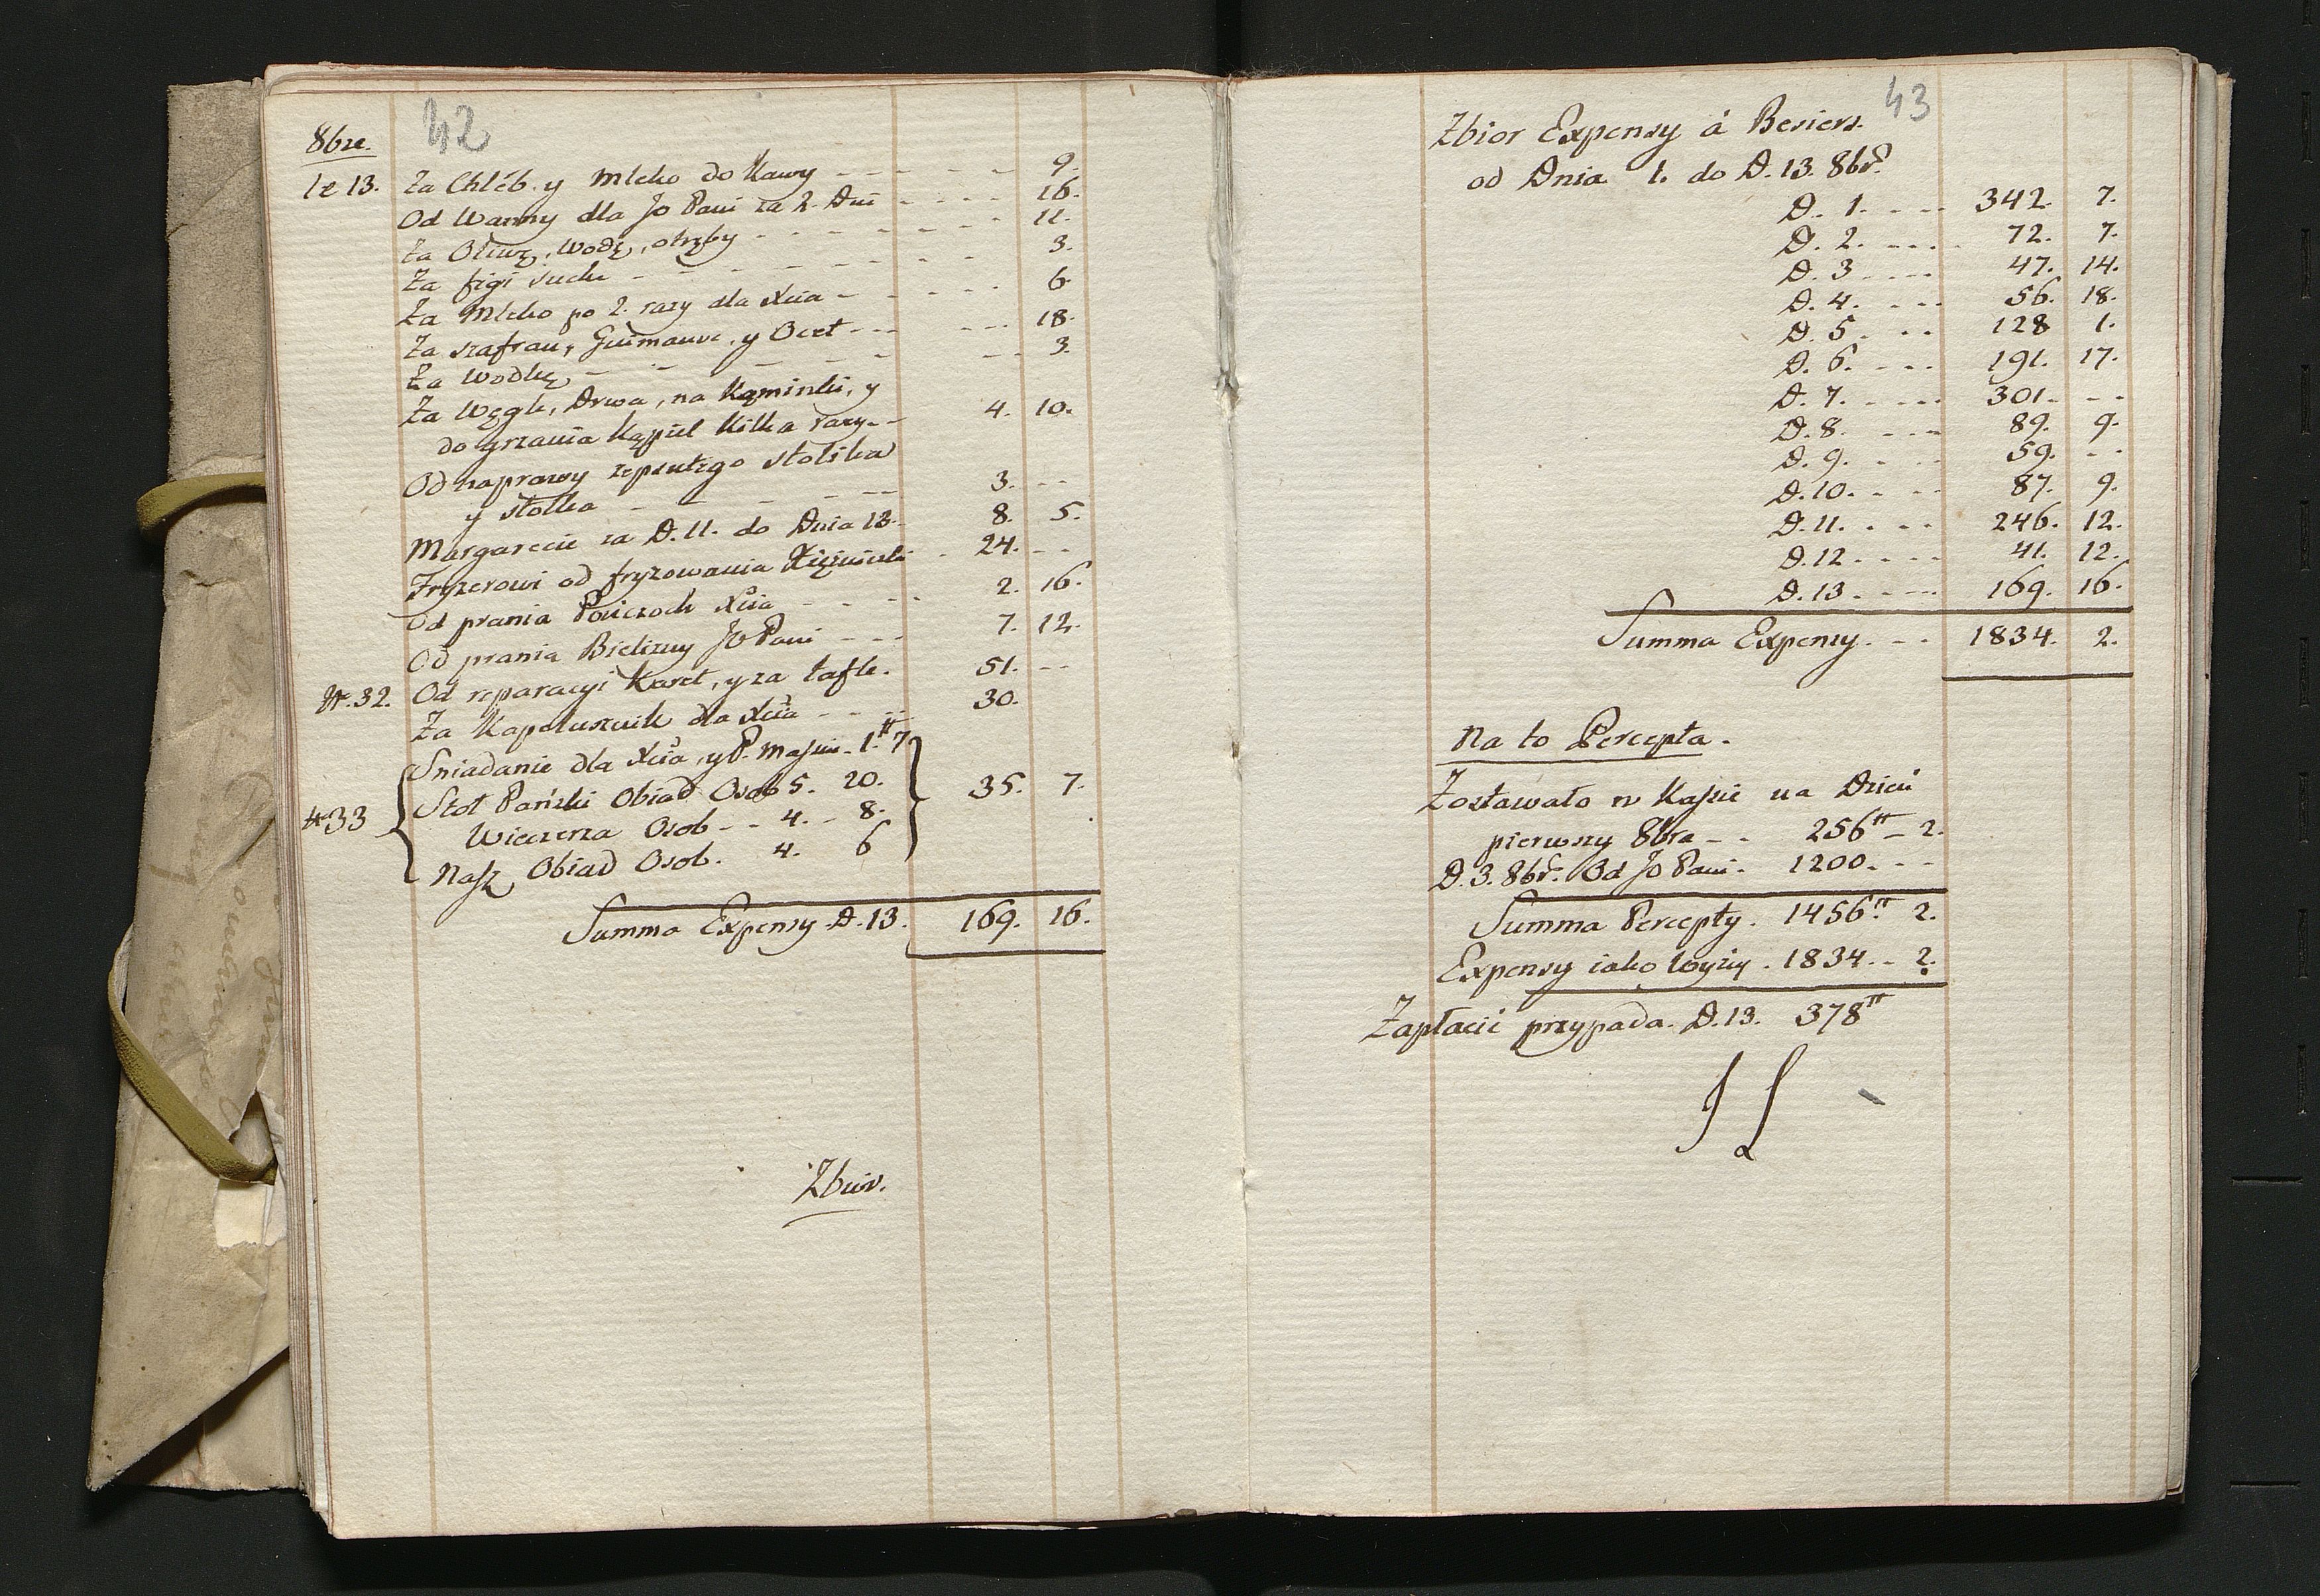 42
8bre.
le 13. Za Chléb. y Mleko do Kawy - - - - - 9.
Od Wanny dla Jo Pani za 2. Dni - - - - 16.
Za Oliwę, Wodę, otręby - - - - - - - 11.
Za figi suche - - - - - - - - 3.
Za Mleko po 2. razy dla Xcia - - - - - 6.
Za szafran, Guimauve, y Ocet - - - - - - 18.
Za Wodkę - - - - - - - 3.
Za Węgle, Drwa, na Kominki, y
do grzania Kąpiel Kilka razy - - 4. 10.
Od naprawy zepsutego stolika
y stołka - - - - - - 3. - -
Margarecie za D. 11. do Dnia 13. 8. 5.
Fryzerowi od fryzowania - 24. - -
Od prania Pończoch Xcia - - - - 2. 16.
Od prania Bielizny Jo Pani - - - 7. 12.
№. 32. Od reparacyi Karet, y za tafle. 51. - -
Za Kapelusznik dla Xcia - - - - 30.
Sniadanie dla Xcia, y P. - 1.tt 7
Stoł Pański Obiad Osob 5. 20.
№ 33 35. 7.
Wieczerza Osob - - 4. - 8.
Nasz Obiad Osob. 4. 6
Summa Expensy D. 13. 169. 16.
Zbior.
43
Zbior Expensy á Besiers.
od Dnia 1. do D. 13. 8br.
D. 1. - - - 342. 7.
D. 2. - - - - 72. 7.
D. 3 - - - 47. 14.
D. 4. - - - 56. 18.
D. 5 - - - 128 1.
D. 6. - - - 191. 17.
D. 7. - - - - 301. - -
D. 8. - - - 89. 9.
D. 9. - - - 59. - -
D. 10. - - - 87. 9.
D. 11. - - - 246. 12.
D. 12 - - - - 41. 12.
D. 13. - - - 169. 16.
Summa Expensy. - - 1834. 2.
Na to Percepta.
Zostawało w Kassie na Dzień
pierwszy 8bra - - 256tt - 2.
D. 3. 8br. Od Jo Pani. 1200. - -
Summa Percepty. 1456.tt 2.
Expensy iako wyżey. 1834. - 2.
Zapłacić przypada. D. 13. 378tt